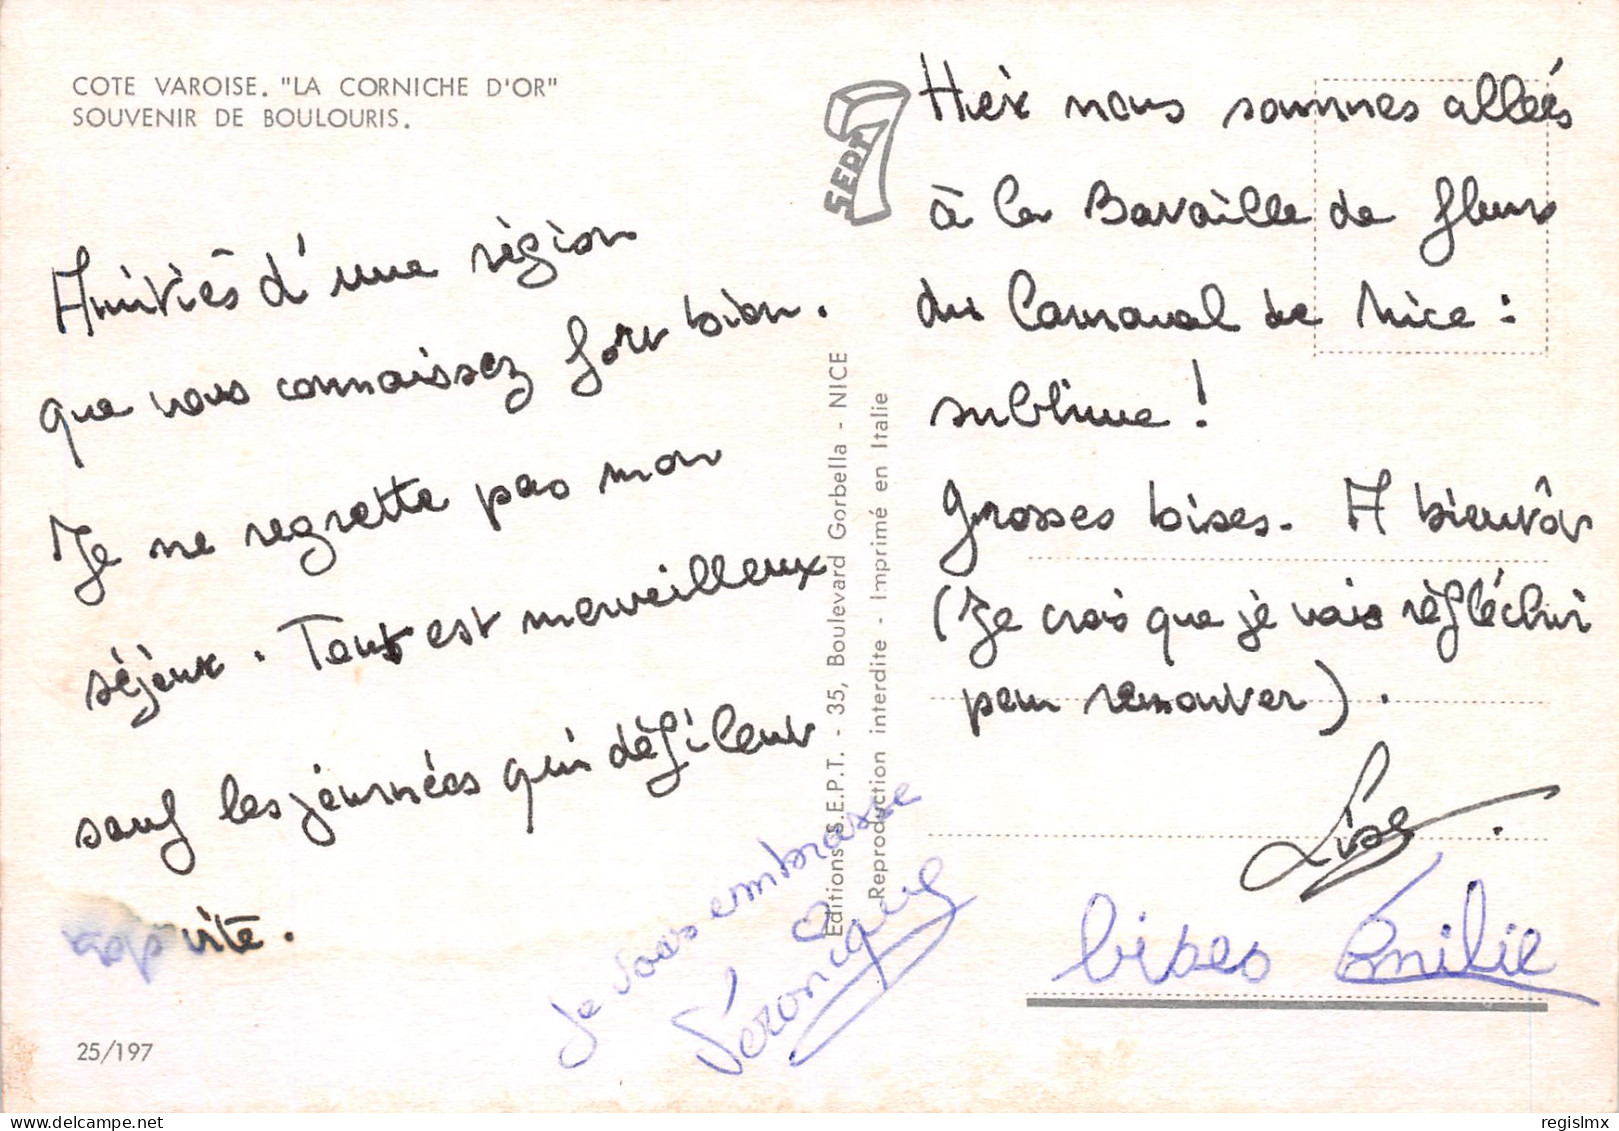 COTE VAROISE. "LA CORNICHE D'OR"
SOUVENIR DE BOULOURIS.
SEPT
7
Amitiés d'une région
que vous connaissez fort bien.
Je ne regrette pas mon
séjour. Tout est merveilleux
sauf les journées qui défilent
trop vite.
25/197
Je vous embrasse
Véronique
Editions S.E.P.T. - 35, Boulevard Gorbella - NICE
Reproduction interdite - Imprimé en Italie
Hier nous sommes allées
à la Bataille de fleurs
du Carnaval de Nice :
sublime !
Grosses bises. A bientôt
(Je crois que je vais réfléchir
pour remonter).
Lise.
bises Émilie
regislmx